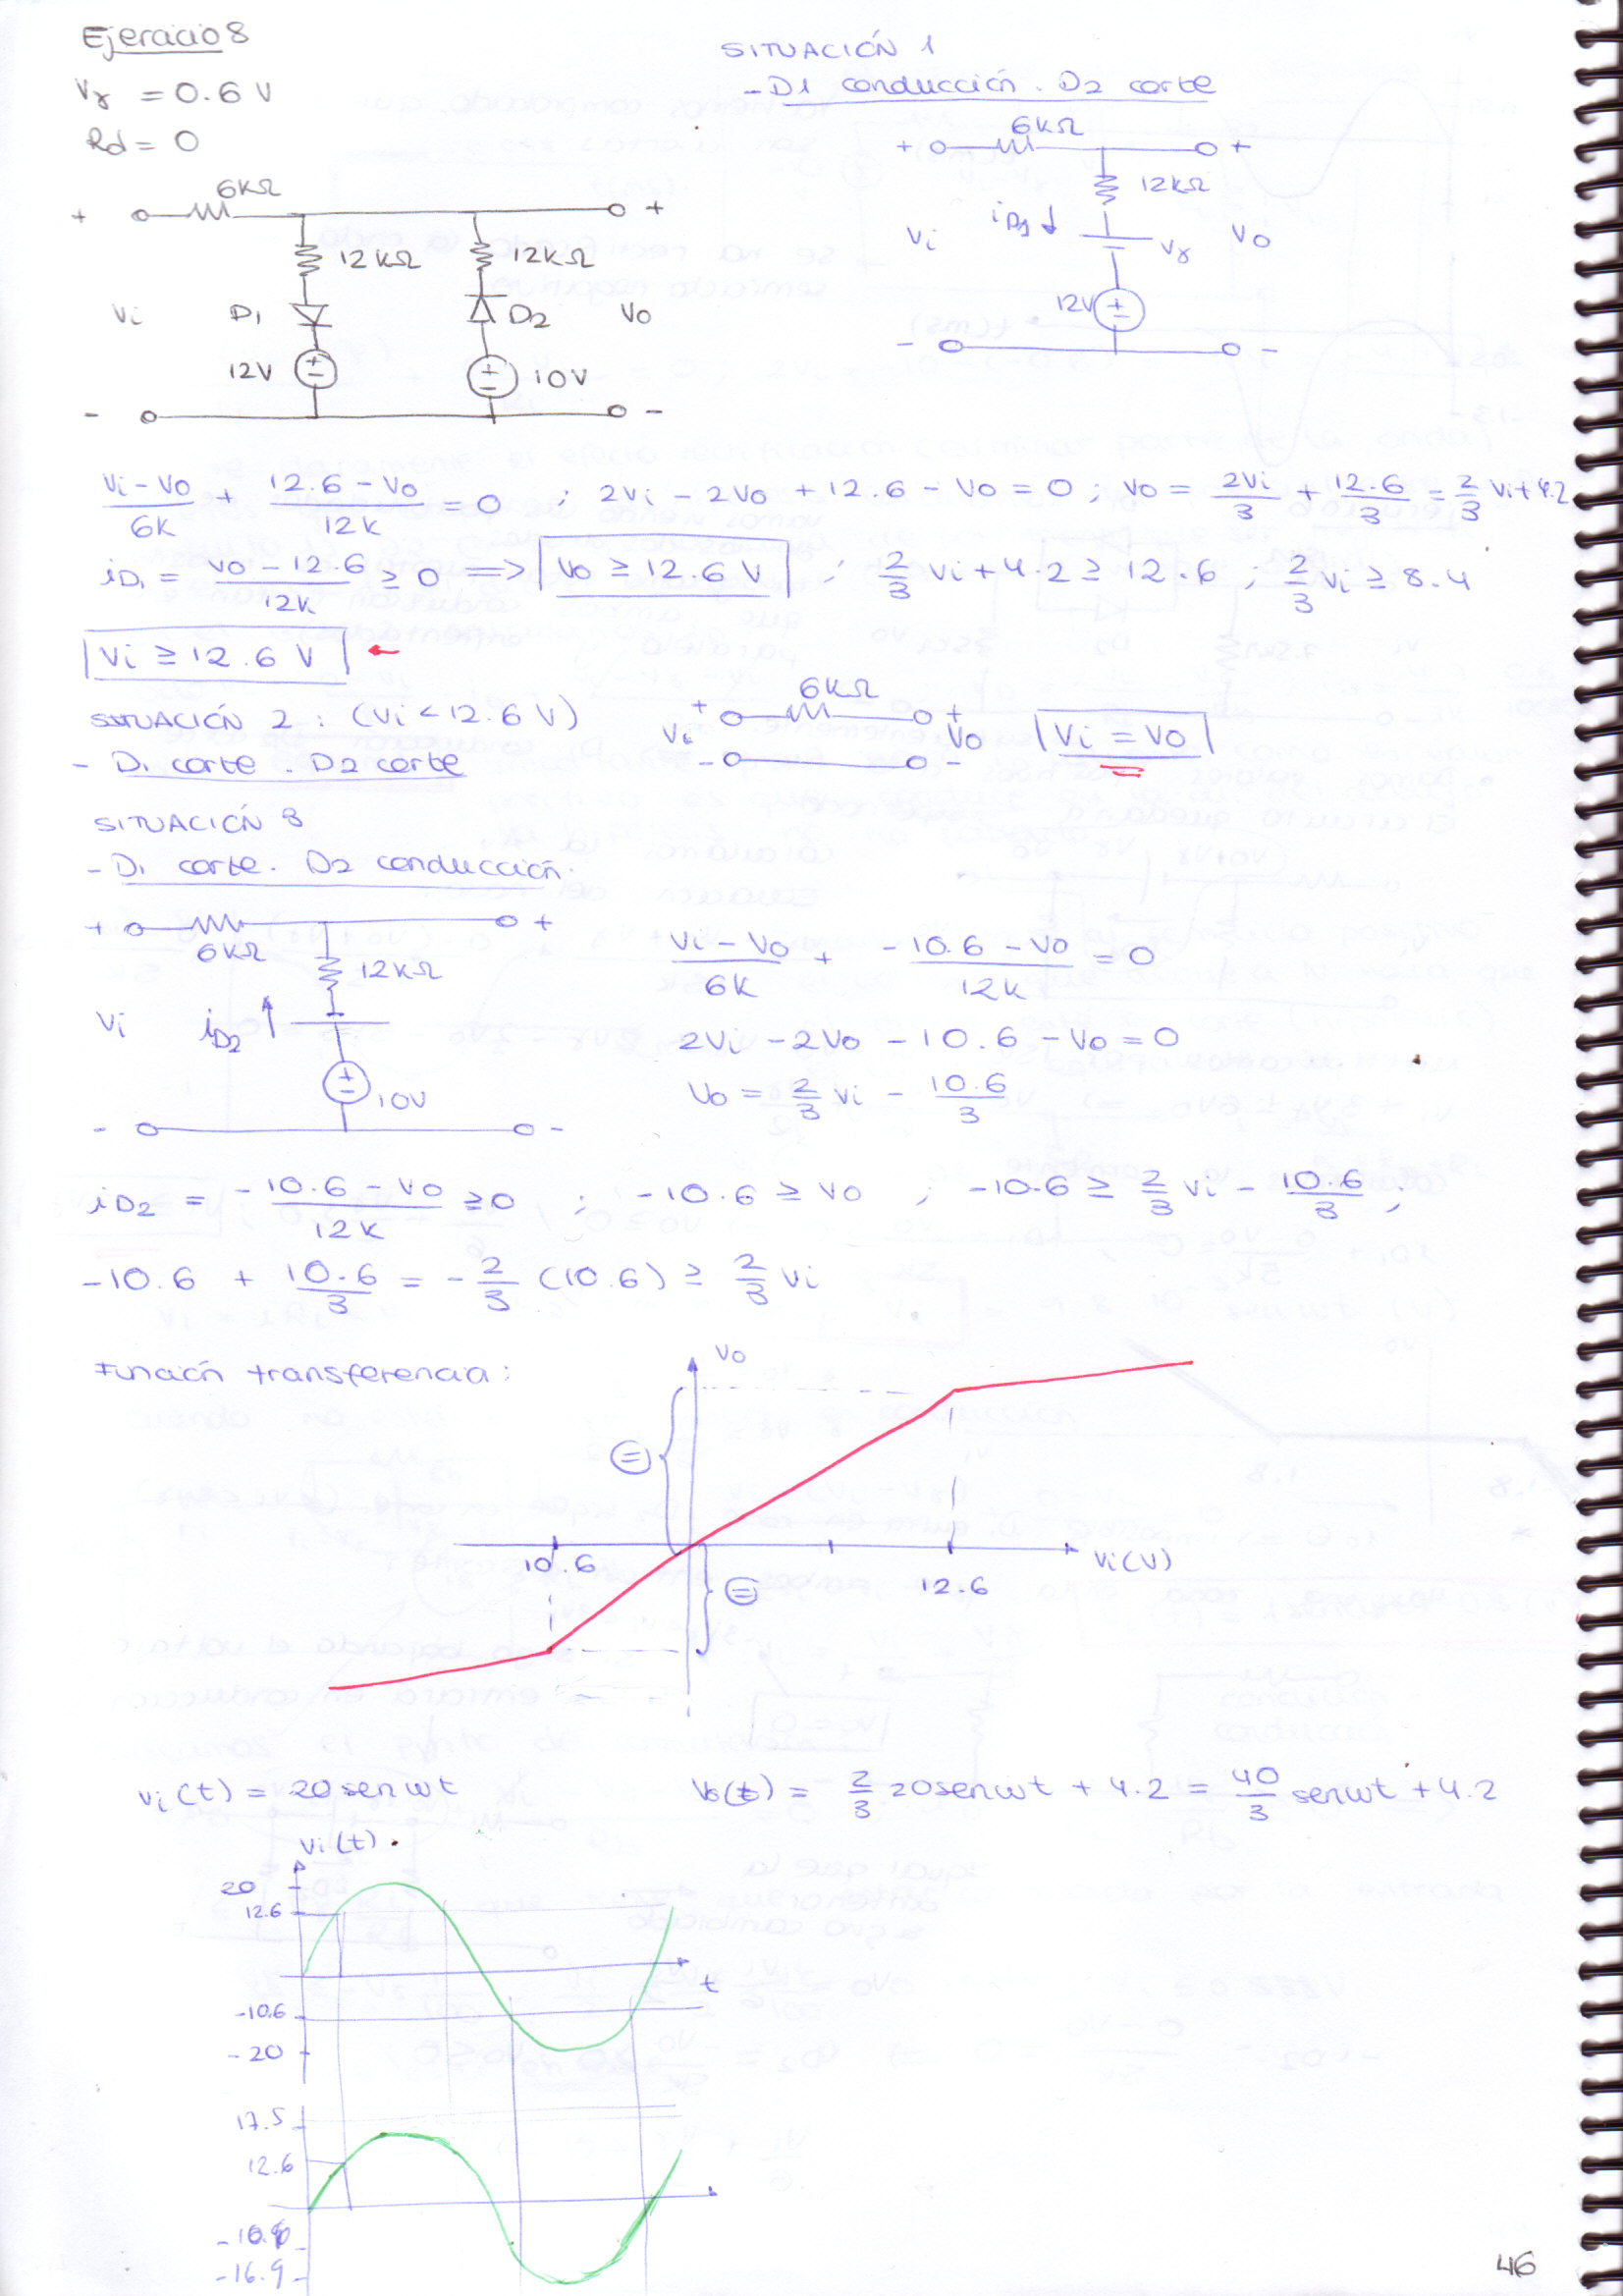 Ejercicio 8
Vγ = 0.6 V
Rd = 0
6KΩ
+ +
12KΩ 12KΩ
Vi D1 D2 Vo
12V 10V
- -
SITUACIÓN 1
- D1 conducción. D2 corte
6KΩ
+ +
12KΩ
iD1 ↓
Vi Vγ Vo
12V
- -
Vi - Vo / 6K + 12.6 - Vo / 12K = 0 ; 2Vi - 2Vo + 12.6 - Vo = 0 ; Vo = 2Vi / 3 + 12.6 / 3 = 2/3 Vi + 4.2
iD1 = Vo - 12.6 / 12K ≥ 0 => Vo ≥ 12.6 V ; 2/3 Vi + 4.2 ≥ 12.6 ; 2/3 Vi ≥ 8.4
Vi ≥ 12.6 V ←
SITUACIÓN 2 : (Vi < 12.6 V)
- D1 corte. D2 corte
6KΩ
+ +
Vi Vo
- -
Vi = Vo
SITUACIÓN 3
- D1 corte. D2 conducción.
+ +
6KΩ
12KΩ
Vi iD2 ↑
10V
- -
Vi - Vo / 6K + -10.6 - Vo / 12K = 0
2Vi - 2Vo - 10.6 - Vo = 0
Vo = 2/3 Vi - 10.6 / 3
iD2 = -10.6 - Vo / 12K ≥ 0 ; -10.6 ≥ Vo ; -10.6 ≥ 2/3 Vi - 10.6 / 3 ;
-10.6 + 10.6 / 3 = - 2/3 (10.6) ≥ 2/3 Vi
Función transferencia :
Vo
=
10.6 12.6 Vi(V)
=
vi(t) = 20 sen ωt
Vo(t) = 2/3 20 sen ωt + 4.2 = 40/3 sen ωt + 4.2
Vi(t)
20
12.6
t
-10.6
-20
17.5
12.6
-16.9
46